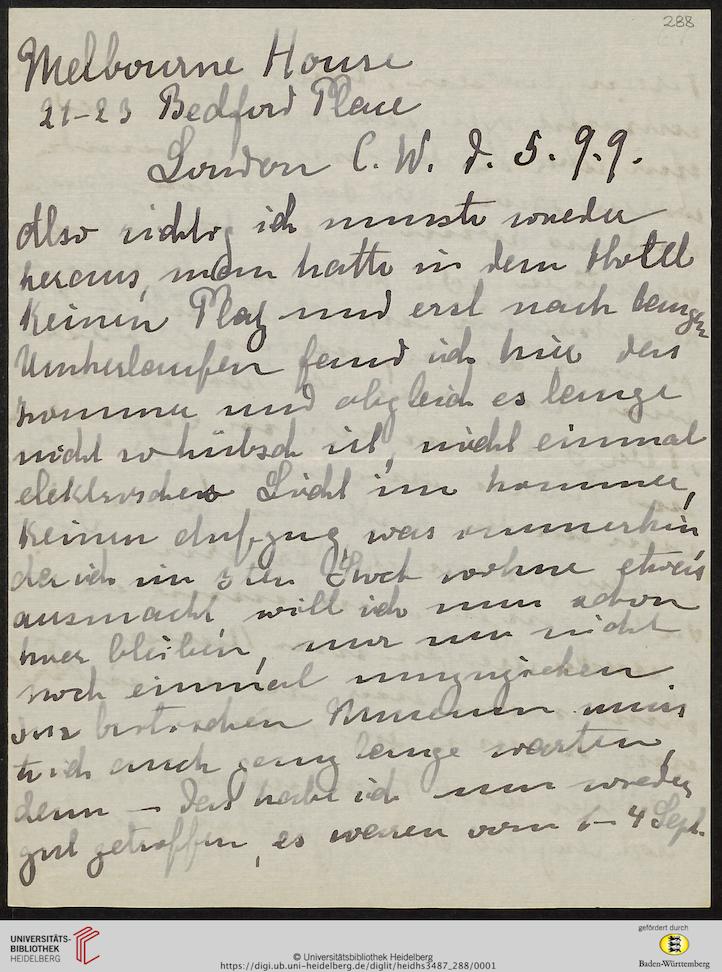 288
Melbourne House
21-23 Bedford Place
London C. W. d. 5. 9. 9.
Also richtig ich musste wieder
heraus, man hatte in dem Hotel
keinen Platz und erst nach langem
Umherlaufen fand ich hier das
Zimmer und obgleich es lange
nicht so hübsch ist, nicht einmal
elektrisches Licht im Zimmer,
keinen Aufzug was immerhin
da ich im 3ten Stock wohne etwas
ausmacht will ich nun schon
hier bleiben, nur um nicht
noch einmal umzuziehen
Im britischen Museum muss
te ich auch ganz lange warten,
denn – das habe ich nun wieder
gut getroffen, es waren vom 1–4 Sept.
UNIVERSITÄTS-
BIBLIOTHEK
HEIDELBERG
© Universitätsbibliothek Heidelberg
https://digi.ub.uni-heidelberg.de/diglit/heidhs3487_288/0001
gefördert durch
Baden-Württemberg